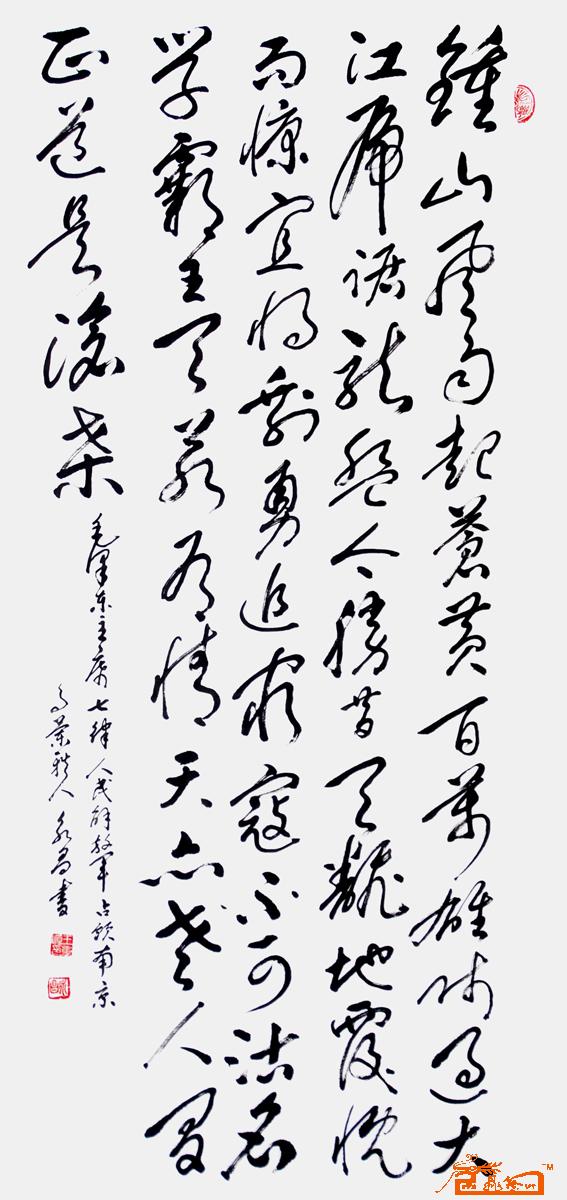 鍾山風雨起蒼黄百萬雄師過大
江虎踞龍盤今勝昔天翻地覆慨
而慷宜將剩勇追窮寇不可沽名
学霸王天若有情天亦老人間
正道是滄桑
毛澤東主席七律人民解放軍占領南京
人永昌書